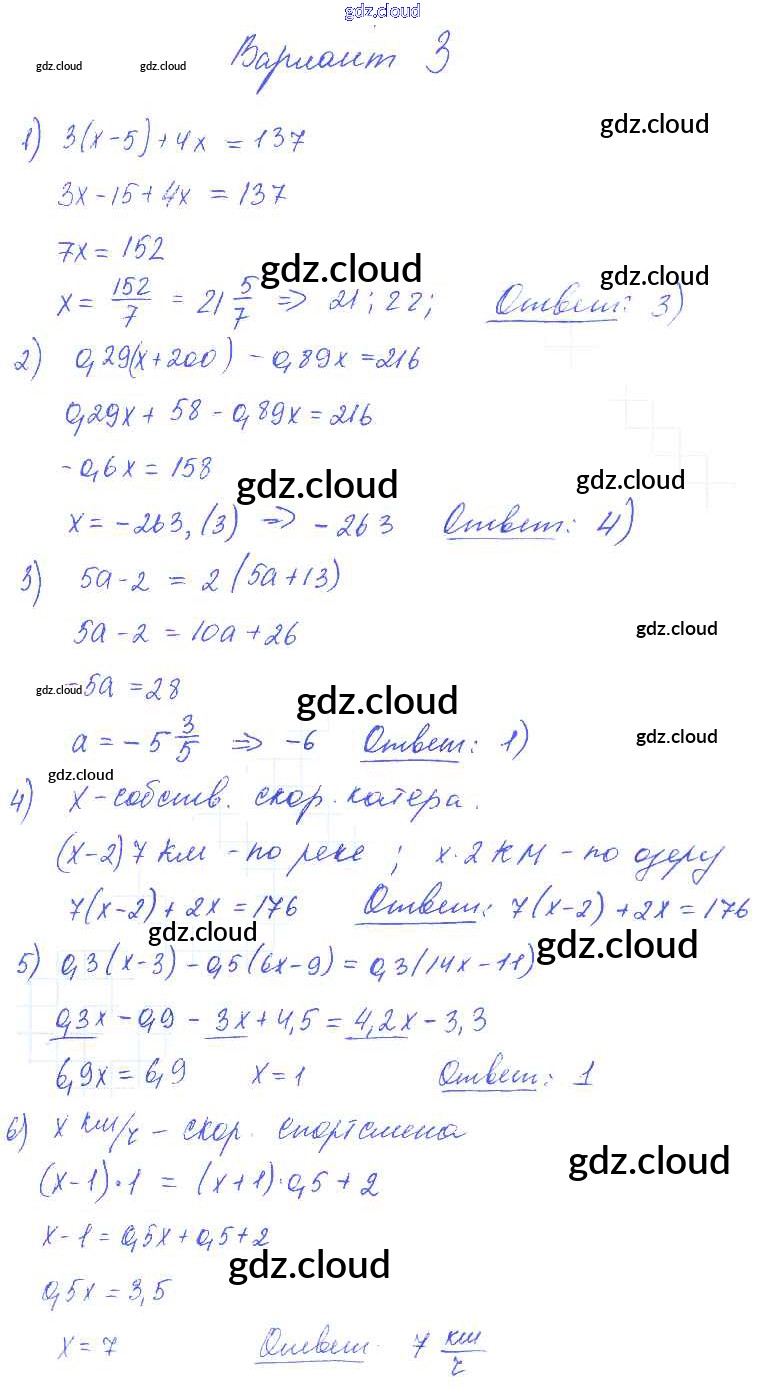 gdz.cloud
gdz.cloud gdz.cloud Вариант 3
gdz.cloud
1) 3(x-5)+4x = 137
3x-15+4x = 137
7x = 152
gdz.cloud gdz.cloud
x = 152/7 = 21 5/7 => 21; 22; Ответ: 3)
2) 0,29(x+200) - 0,89x = 216
0,29x + 58 - 0,89x = 216
-0,6x = 158
gdz.cloud gdz.cloud
x = -263,(3) => -263 Ответ: 4)
3) 5a-2 = 2(5a+13)
5a-2 = 10a+26
gdz.cloud
-5a = 28
gdz.cloud gdz.cloud
a = -5 3/5 => -6 Ответ: 1)
gdz.cloud
gdz.cloud
4) x-собств. скор. катера.
(x-2)7 км - по реке; x·2 км - по озеру
7(x-2)+2x = 176 Ответ: 7(x-2)+2x = 176
gdz.cloud gdz.cloud
5) 0,3(x-3) - 0,5(6x-9) = 0,3(14x-11)
0,3x - 0,9 - 3x + 4,5 = 4,2x - 3,3
6,9x = 6,9 x = 1 Ответ: 1
6) x км/ч - скор. спортсмена
gdz.cloud
(x-1)·1 = (x+1)·0,5+2
x-1 = 0,5x+0,5+2
gdz.cloud
0,5x = 3,5
x = 7 Ответ. 7 км/ч